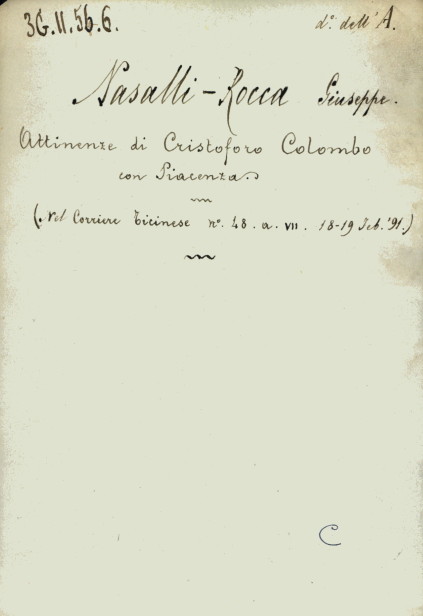 3G.II.56.6.
d.º dell'A.
Nasalli-Rocca Giuseppe.
Attinenze di Cristoforo Colombo
con Piacenza.
(Nel Corriere Ticinese nº. 48. a. VII. 18-19 Feb. '91.)
C